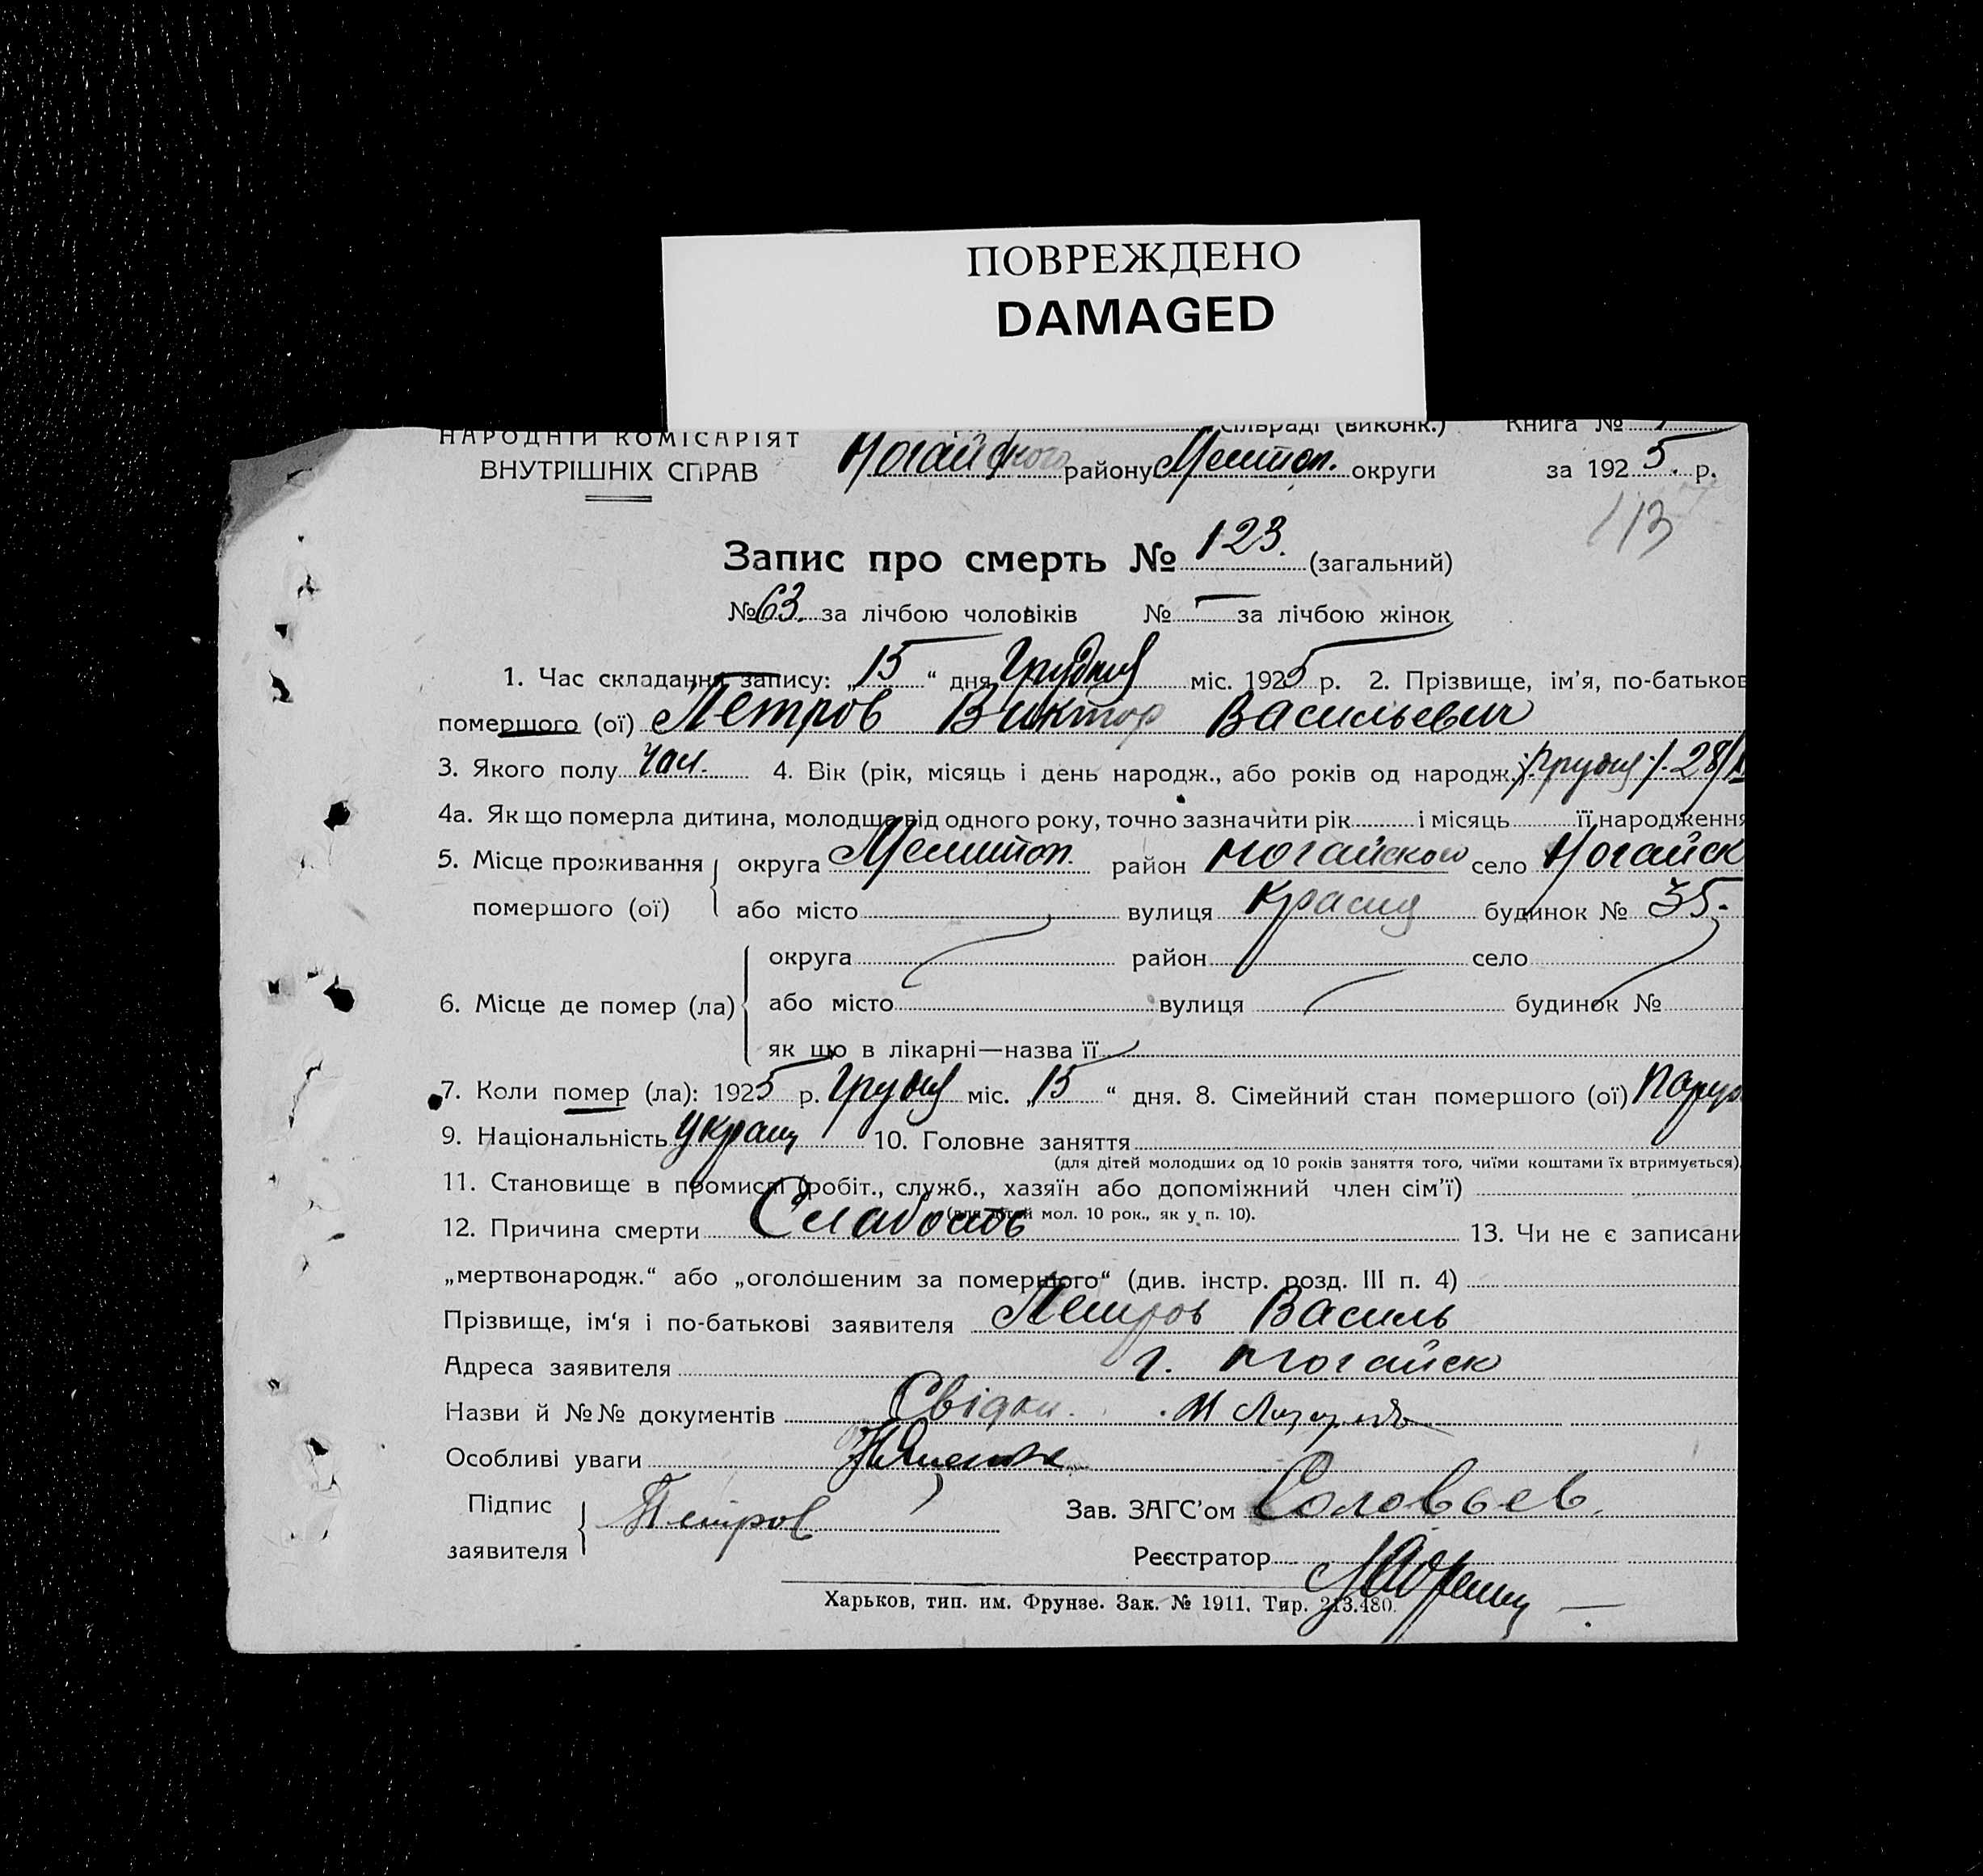 ПОВРЕЖДЕНО
DAMAGED
НАРОДНІЙ КОМІСАРІЯТ сільраді (виконк.) Книга №
ВНУТРІШНІХ СПРАВ Ногайского району Мелитоп. округи за 1925. р.
113
Запис про смерть № 123. (загальний)
№ 63. за лічбою чоловіків № за лічбою жінок
1. Час складання запису: „15“ дня Грудня міс. 1925 р. 2. Прізвище, ім’я, по-батьков
помершого (ої) Петров Виктор Васильевич
3. Якого полу чол. 4. Вік (рік, місяць і день народж., або років од народж.)
4а. Як що померла дитина, молодша від одного року, точно зазначити рік і місяць її народження
5. Місце проживання округа Мелитоп. район Ногайского село Ногайск
помершого (ої) або місто вулиця будинок № 35.
округа район село
6. Місце де помер (ла) або місто вулиця будинок №
як що в лікарні—назва її
7. Коли помер (ла): 1925 р. Грудня міс. „15“ дня. 8. Сімейний стан помершого (ої)
9. Національність Украин 10. Головне заняття
(для дітей молодших од 10 років заняття того, чиїми коштами їх втримується).
11. Становище в промислі (робіт., служб., хазяїн або допоміжний член сім’ї)
(для дітей мол. 10 рок., як у п. 10).
12. Причина смерти Слабость 13. Чи не є записани
„мертвонародж.“ або „оголошеним за помершого“ (див. інстр. розд. III п. 4)
Прізвище, ім‘я і по-батькові заявителя Петров Василь
Адреса заявителя г. Ногайск
Назви й №№ документів Свідки.
Особливі уваги
Підпис
заявителя Петров
Зав. ЗАГС’ом Соловьев.
Реєстратор
Харьков, тип. им. Фрунзе. Зак. № 1911. Тир. 213.480.